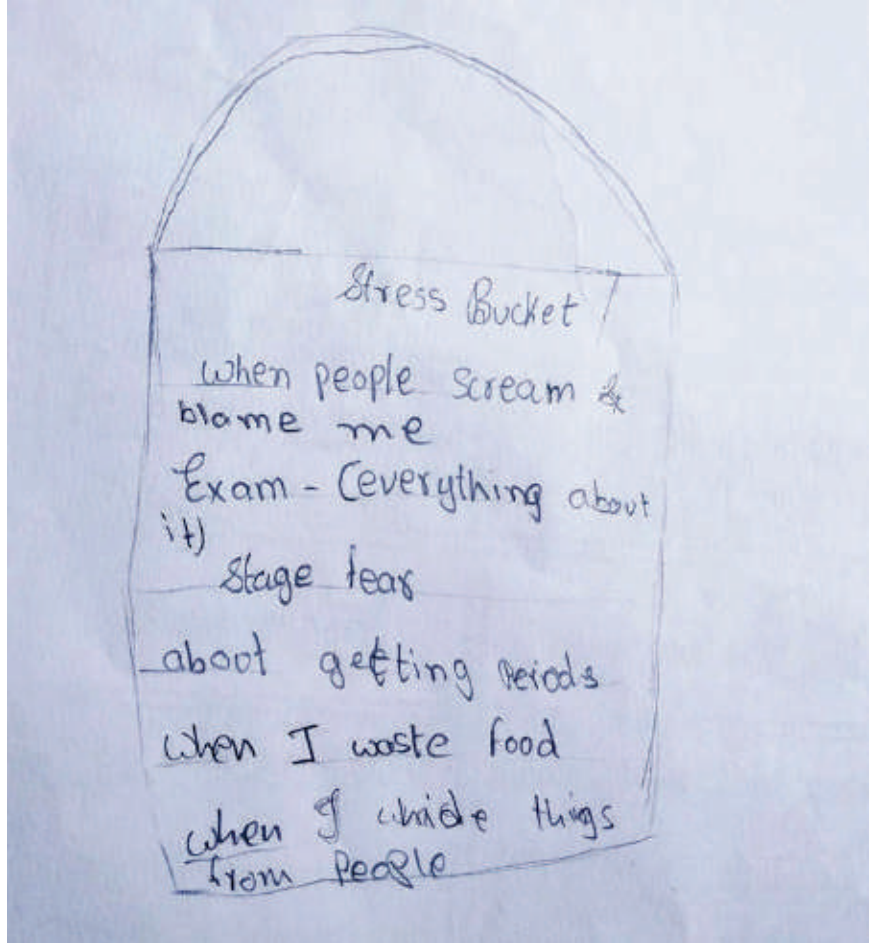 Stress Bucket
when people scream &
blame me
Exam - (everything about
it)
Stage fear
about getting periods
when I waste food
when I whide things
from people